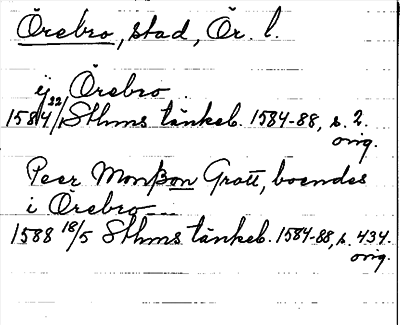 Örebro, stad, Ör. l.
ij Örebro
1584 22/1 Sthms tänkeb. 1584-88, s. 2.
orig.
Peer Monßon Grott, boendes
i Örebro
1588 18/5 Sthms tänkeb. 1584-88, s. 434.
orig.